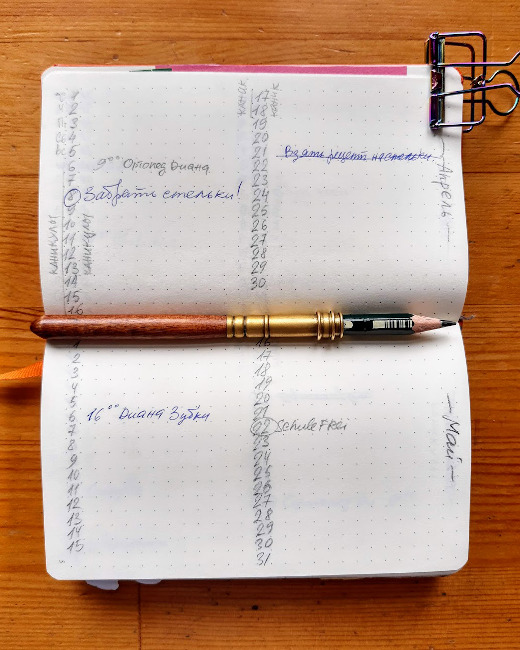 Апрель
1
2
3
4
5
6
7
8
9
10
11
12
13
14
15
каникулы
каникулы
9⁰⁰ Ортопед Диана
Забрать стельки!
17
18
19
20
21
22
23
24
25
26
27
28
29
30
каник
каник
Взять рецепт на стельки.
Май
1
2
3
4
5
6
7
8
9
10
11
12
13
14
15
16⁰⁰ Диана Зубки
16
17
18
19
20
21
22 Schule Frei
23
24
25
26
27
28
29
30
31